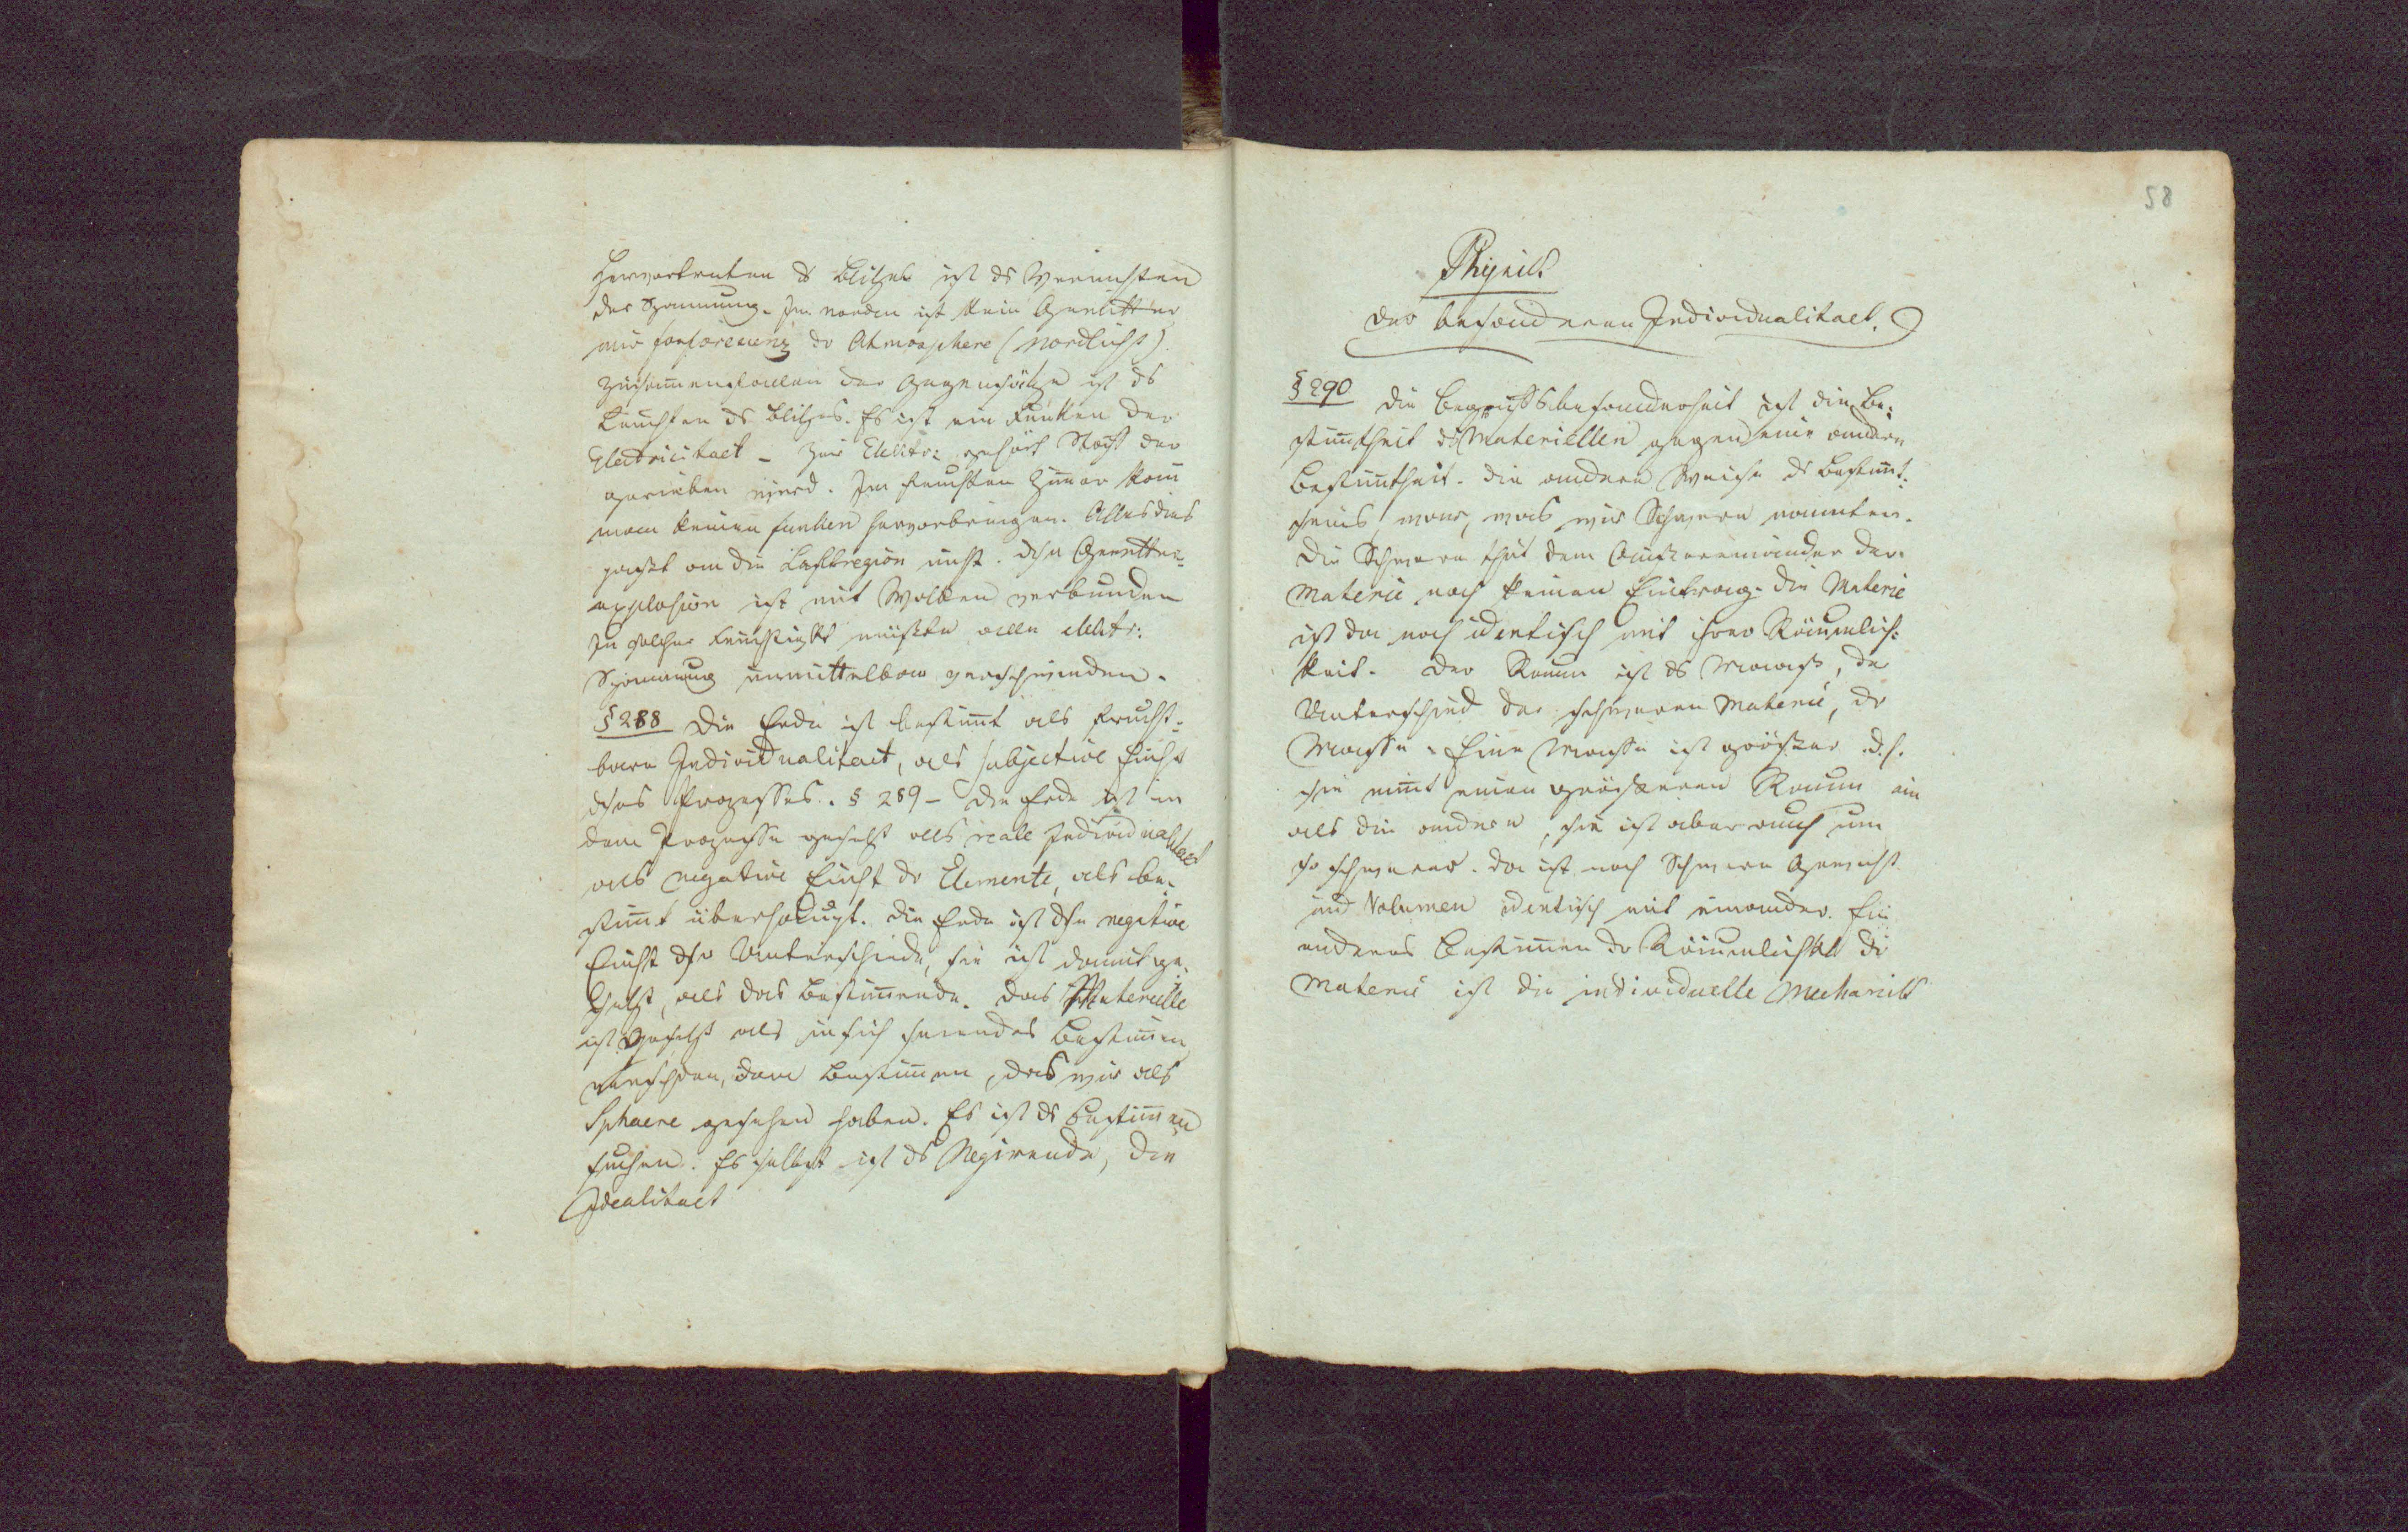 Hervortreten ds Blitzes ist ds Vernichten
der Spannung. Im Norden ist kein Gewitter
nur forforecenz dr Atmosphere (Nordlicht)
Zusam̅enfallen der Gegensätze ist ds
Leuchten ds Blitzes. Es ist ein Funken der
Electricitaet – Zur Elektr: gehört Stoff der
gerieben wird. Im feuchten Zim̅er kan̅
man keinen funken hervorbringen. Alles dies
passt an die Luftregion nicht. Gewitter-
explosion ist mit Wolken verbunden
In solcher Feuchtigkt müßte alle elektr:
Spannung unmittelbar verschwinden.
§ 288 Die Erde ist bestim̅t als frucht-
bare Individualitaet, als subjective Einht
dses Prozesses. § 289 – Die Erde ist in
dem Prozesse gesetzt als reale Individualitaet
als negative Einht dr Elemente, als be-
stim̅t überhaupt. Die Erde ist dse negative
Einht dsr Unterschiede, sie ist damit ge-
setzt, als das Bestim̅ende. Das Materielle
ist gesetzt als in sich seiendes Bestim̅en
dem Bestim̅en, das wir als
Sphaere gesehen haben. Es ist ds Bestim̅en
suchen. Es selbst ist ds Negirende, die
Idealitaet
58
Physik
der besonderen Individualitaet.
§ 290 Die Begriffsbesonderheit ist die Be-
stim̅theit ds Materiellen gegen eine andere
Bestim̅theit. Die andere Weise ds Bestim̅t-
seins war, was wir Schwere nannten.
Die Schwere thut dem Außereinander der
Materie noch keinen Eintrag. Die Materie
ist da noch identisch mit ihrer Räumlich-
keit. Der Raum ist ds Maaß, der
Unterschied der schweren Materie, dr
Masse. Eine Masse ist größer d.h.
sie nim̅t einen größeren Raum ein
als die andere, sie ist aber auch um
so schwerer. Da ist noch Schwere Gewicht
und Volumen identisch mit einander. Ein
anderes Bestim̅en dr Räumlichkt dr
Materie ist die individuelle Mechanik